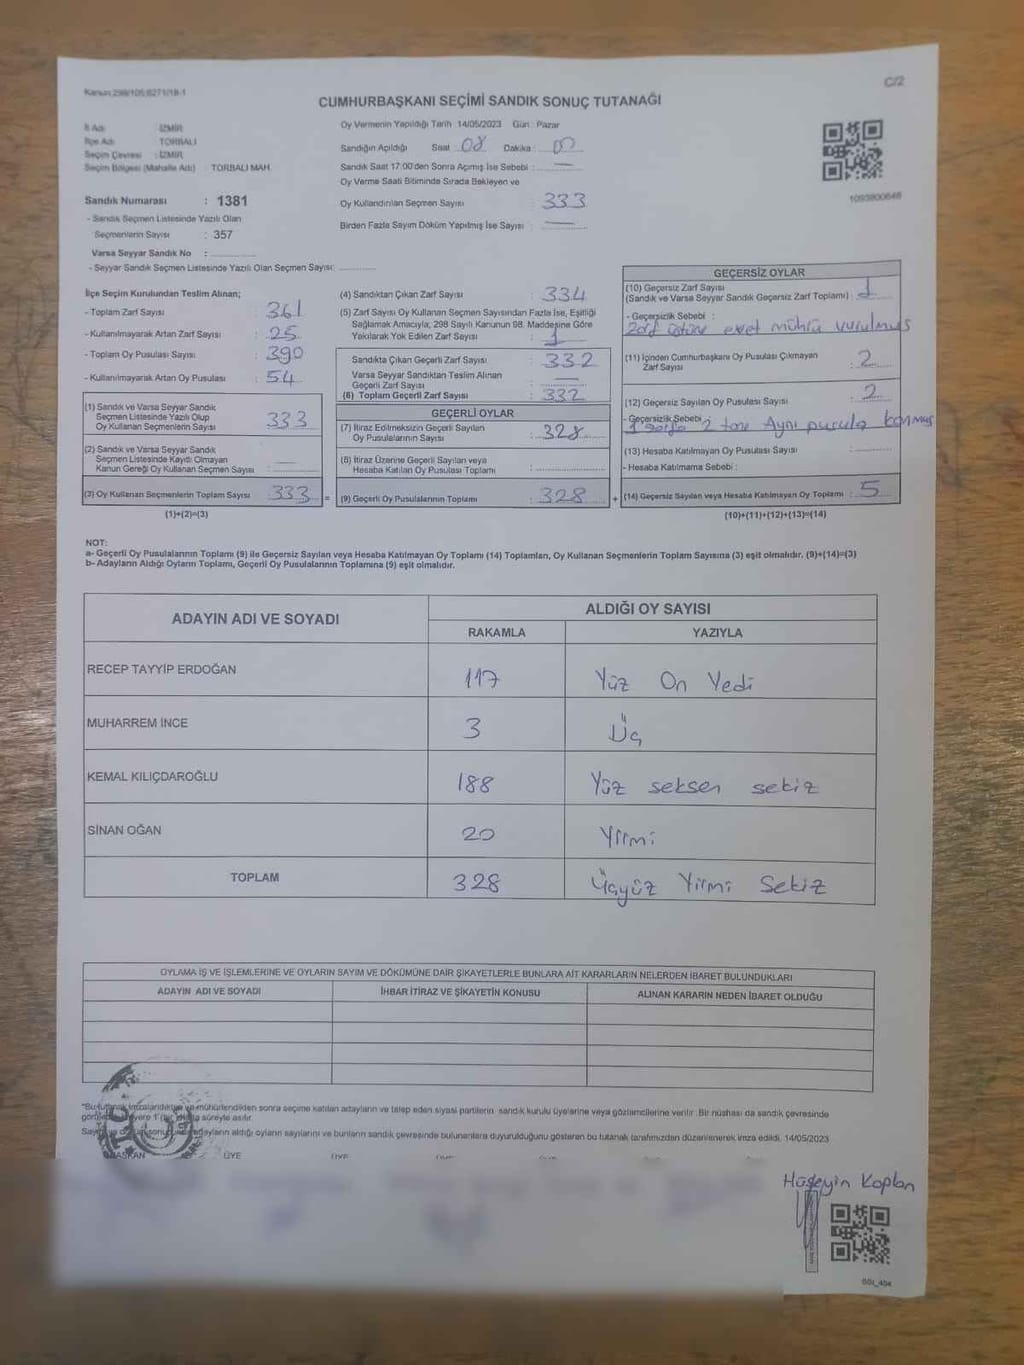 Kanun:298/105;6271/18-1
C/2
CUMHURBAŞKANI SEÇİMİ SANDIK SONUÇ TUTANAĞI
İl Adı : İZMİR
İlçe Adı : TORBALI
Seçim Çevresi : İZMİR
Seçim Bölgesi (Mahalle Adı) : TORBALI MAH.
Oy Vermenin Yapıldığı Tarih 14/05/2023 Gün : Pazar
Sandığın Açıldığı Saat 08 Dakika : 00
Sandık Saat 17:00'den Sonra Açılmış İse Sebebi : —
Oy Verme Saati Bitiminde Sırada Bekleyen ve
Oy Kullandırılan Seçmen Sayısı : 333
Birden Fazla Sayım Döküm Yapılmış İse Sayısı : —
1093800648
Sandık Numarası : 1381
- Sandık Seçmen Listesinde Yazılı Olan
Seçmenlerin Sayısı : 357
Varsa Seyyar Sandık No :
- Seyyar Sandık Seçmen Listesinde Yazılı Olan Seçmen Sayısı:
İlçe Seçim Kurulundan Teslim Alınan;
- Toplam Zarf Sayısı : 361
- Kullanılmayarak Artan Zarf Sayısı : 25
- Toplam Oy Pusulası Sayısı : 390
- Kullanılmayarak Artan Oy Pusulası : 54
(1) Sandık ve Varsa Seyyar Sandık
Seçmen Listesinde Yazılı Olup
Oy Kullanan Seçmenlerin Sayısı : 333
(2) Sandık ve Varsa Seyyar Sandık
Seçmen Listesinde Kaydı Olmayan
Kanun Gereği Oy Kullanan Seçmen Sayısı : —
(3) Oy Kullanan Seçmenlerin Toplam Sayısı : 333 =
(1)+(2)=(3)
(4) Sandıktan Çıkan Zarf Sayısı : 334
(5) Zarf Sayısı Oy Kullanan Seçmen Sayısından Fazla İse, Eşitliği
Sağlamak Amacıyla, 298 Sayılı Kanunun 98. Maddesine Göre
Yakılarak Yok Edilen Zarf Sayısı : 1
Sandıkta Çıkan Geçerli Zarf Sayısı : 332
Varsa Seyyar Sandıktan Teslim Alınan
Geçerli Zarf Sayısı : —
(6) Toplam Geçerli Zarf Sayısı : 332
GEÇERLİ OYLAR
(7) İtiraz Edilmeksizin Geçerli Sayılan
Oy Pusulalarının Sayısı : 328
(8) İtiraz Üzerine Geçerli Sayılan veya
Hesaba Katılan Oy Pusulası Toplamı :
(9) Geçerli Oy Pusulalarının Toplamı : 328 +
GEÇERSİZ OYLAR
(10) Geçersiz Zarf Sayısı
(Sandık ve Varsa Seyyar Sandık Geçersiz Zarf Toplamı) : 1
- Geçersizlik Sebebi :
Zarf üstüne evet mührü vurulmuş
(11) İçinden Cumhurbaşkanı Oy Pusulası Çıkmayan
Zarf Sayısı : 2
(12) Geçersiz Sayılan Oy Pusulası Sayısı : 2
- Geçersizlik Sebebi :
1 zarfa 2 tane Aynı pusula konmuş
(13) Hesaba Katılmayan Oy Pusulası Sayısı :
- Hesaba Katılmama Sebebi :
(14) Geçersiz Sayılan veya Hesaba Katılmayan Oy Toplamı : 5
(10)+(11)+(12)+(13)=(14)
NOT:
a- Geçerli Oy Pusulalarının Toplamı (9) ile Geçersiz Sayılan veya Hesaba Katılmayan Oy Toplamı (14) Toplamları, Oy Kullanan Seçmenlerin Toplam Sayısına (3) eşit olmalıdır. (9)+(14)=(3)
b- Adayların Aldığı Oyların Toplamı, Geçerli Oy Pusulalarının Toplamına (9) eşit olmalıdır.
ADAYIN ADI VE SOYADI
ALDIĞI OY SAYISI
RAKAMLA YAZIYLA
RECEP TAYYİP ERDOĞAN 117 Yüz On Yedi
MUHARREM İNCE 3 Üç
KEMAL KILIÇDAROĞLU 188 Yüz seksen sekiz
SİNAN OĞAN 20 Yirmi
TOPLAM 328 Üçyüz Yirmi Sekiz
OYLAMA İŞ VE İŞLEMLERİNE VE OYLARIN SAYIM VE DÖKÜMÜNE DAİR ŞİKAYETLERLE BUNLARA AİT KARARLARIN NELERDEN İBARET BULUNDUKLARI
ADAYIN ADI VE SOYADI İHBAR İTİRAZ VE ŞİKAYETİN KONUSU ALINAN KARARIN NEDEN İBARET OLDUĞU
"Bu tutanak imzalandıktan ve mühürlendikten sonra seçime katılan adayların ve talep eden siyasi partilerin sandık kurulu üyelerine veya gözlemcilerine verilir. Bir nüshası da sandık çevresinde
süreyle asılır.
adayların aldığı oyların sayılarını ve bunların sandık çevresinde bulunanlara duyurulduğunu gösteren bu tutanak tarafımızdan düzenlenerek imza edildi. 14/05/2023
BAŞKAN ÜYE ÜYE
Hüseyin Kaplan